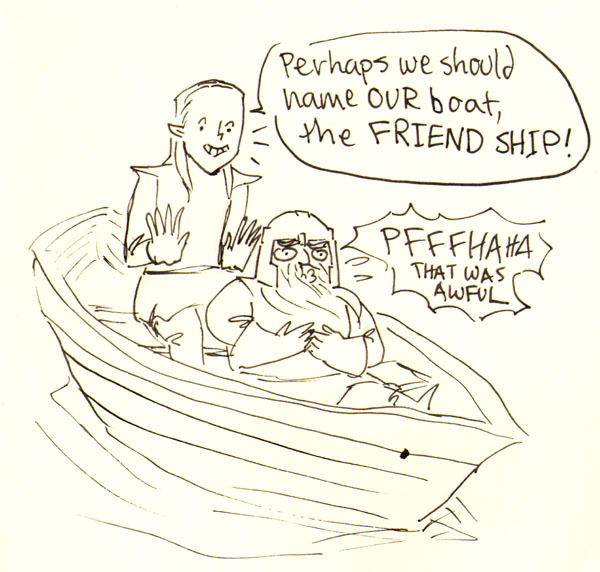 Perhaps we should
name OUR boat,
the FRIEND SHIP!
PFFFHAHA
THAT WAS
AWFUL